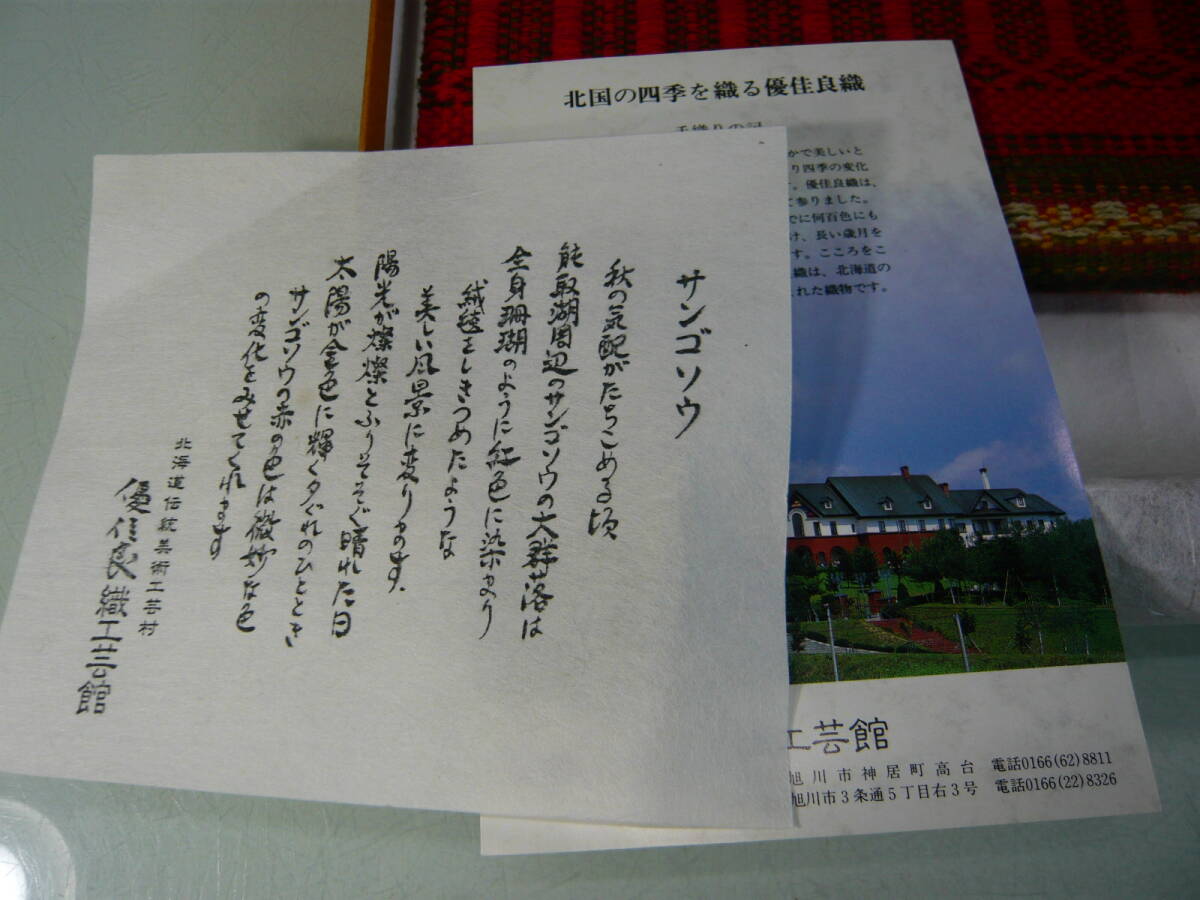 サンゴソウ
秋の気配がたちこめる頃
能取湖周辺のサンゴソウの大群落は
全身珊瑚のように紅色に染まり
絨毯をしきつめたような
美しい風景に変ります.
陽光が燦燦とふりそそぐ晴れた日
太陽が金色に輝く夕ぐれのひととき
サンゴソウの赤の色は微妙な色
の変化をみせてくれます
北海道伝統美術工芸村
優佳良織工芸館
北国の四季を織る優佳良織
手織りの記
かで美しいと
り四季の変化
す。優佳良織は、
て参りました。
でに何百色にも
け、長い歳月を
す。こころをこ
織は、北海道の
まれた織物です。
工芸館
旭川市神居町高台 電話0166(62)8811
旭川市3条通5丁目右3号 電話0166(22)8326